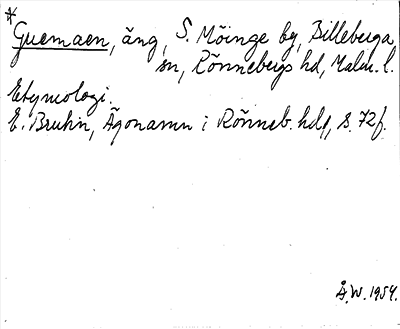 *
Guemaen, äng, S. Möinge by, Billeberga
sn, Rönnebergs hd, Malm. l.
Etymologi.
E. Bruhn, Ägonamn i Rönneb. hd, s. 72f.
Å.W. 1954.